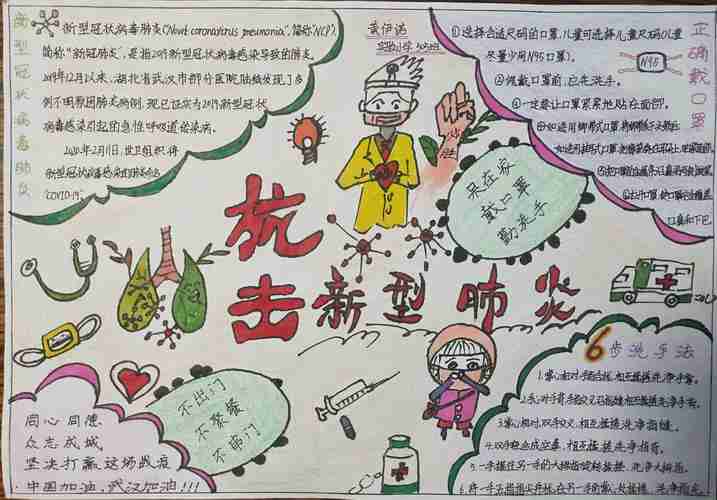 新型冠状病毒肺炎
新型冠状病毒肺炎("Novel coronavirus pneumonia",简称"NCP"),
简称"新冠肺炎",是指2019新型冠状病毒感染导致的肺炎。
2019年12月以来,湖北省武汉市部分医院陆续发现了多
例不明原因肺炎病例,现已证实为2019新型冠状
病毒感染引起的急性呼吸道传染病。
2020年2月11日,世卫组织将
新型冠状病毒感染的肺炎命名
"COVID-19"
黄伊诺
正确戴口罩
①选择合适尺码的口罩,儿童可选择儿童尺码(儿童
尽量少用N95口罩)。
②佩戴口罩前,已先洗手。
③一定要让口罩紧紧地贴在面部。
口鼻和下巴
N95
必胜
呆在家
戴口罩
勤洗手
抗击新型肺炎
6步洗手法
1.掌心相对,手指合拢,相互揉搓洗净手掌。
2.手心对手背,手指交叉,相互揉搓,洗净手背。
3.掌心相对,双手交叉,相互揉搓洗净指缝。
4.双手轻合成空拳,相互揉搓,洗净指背。
5.一手握住另一手的大拇指旋转揉搓,洗净大拇指。
不出门
不聚餐
不串门
同心同德
众志成城
坚决打赢这场战疫
中国加油,武汉加油!!!